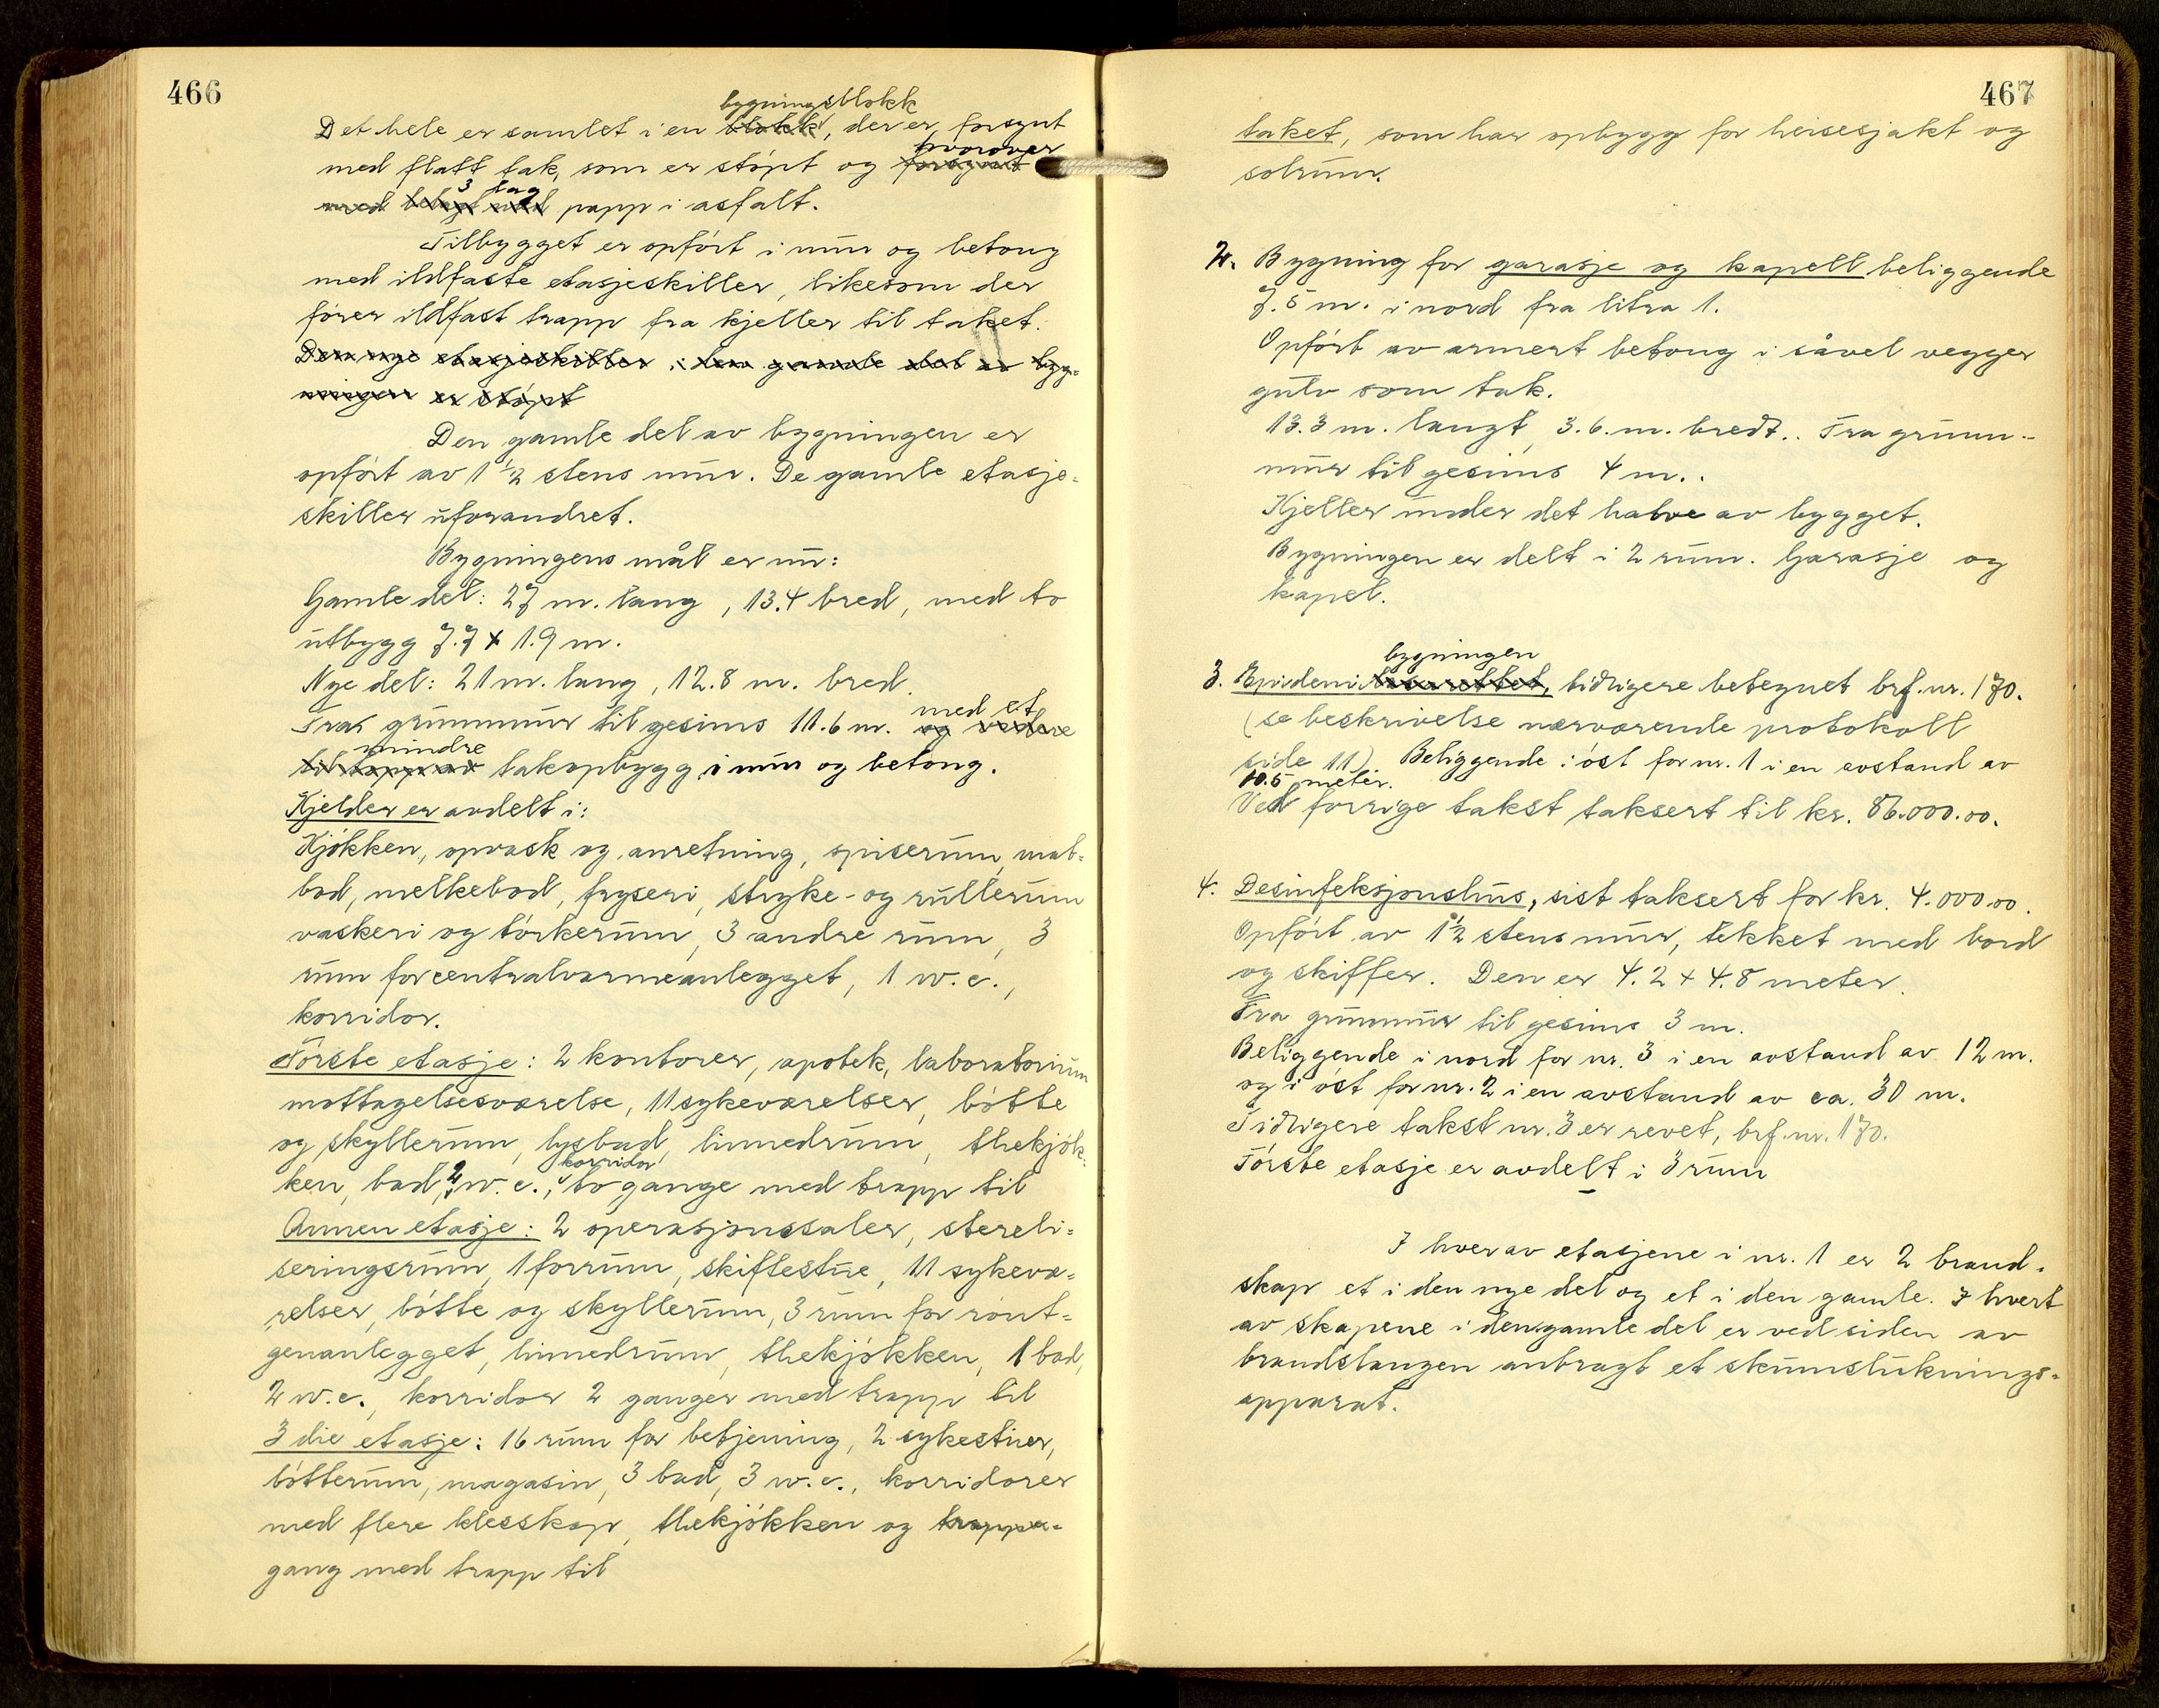 466
bygningsblokk
Det hele er samlet i en blokk, der er forsynt
hvorover
med flatt tak, som er støpt og forsynt
3 lag
med belagt med papp i asfalt.
Tilbygget er opført i mur og betong
med ildfaste etasjeskiller, likesom der
fører ildfast trapp fra kjeller til taket.
Den nye etasjeskiller i den gamle del av byg-
ningen er støpt
Den gamle del av bygningen er
opført av 1 1/2 stens mur. De gamle etasje-
skiller uforandret.
Bygningens mål er nu:
Gamle del: 27 m. lang, 13.4 bred, med to
utbygg 7.7 x 1.9 m.
Nye del: 21 m. lang, 12.8 m. bred.
med et
Fra grunnmur til gesims 11.6 m. og videre
mindre
til topp av takopbygg i mur og betong.
Kjelder er avdelt i:
Kjøkken, opvask og anretning, spiserum, mat-
bod, melkebod, fryseri, stryke- og rullerum
vaskeri og tørkerum, 3 andre rum, 3
rum for centralvarmeanlegget, 1 w.c.,
korridor.
Første etasje: 2 kontorer, apotek, laboratorium
mottagelsesværelse, 11 sykeværelser, bøtte
og skyllerum, lysbad, linnedrum, thekjøk-
korridor
ken, bad, 2 w.c., to gange med trapp til
Annen etasje: 2 operasjonssaler, stereli-
seringsrum, 1 forrum, skiftestue, 11 sykevæ-
relser, bøtte og skyllerum, 3 rum for rønt-
genanlegget, linnedrum, thekjøkken, 1 bad,
2 w.c., korridor 2 ganger med trapp til
3 die etasje: 16 rum for betjening, 2 sykestuer,
bøtterum, magasin, 3 bad, 3 w.c., korridorer
med flere klesskap, thekjøkken og trappe-
gang med trapp til
467
taket, som har opbygg for heisesjakt og
solrum.
2. Bygning for garasje og kapell beliggende
7.5 m. i nord fra litra 1.
Opført av armert betong i såvel vegger
gulv som tak.
13.3 m. langt, 3.6. m. bredt.. Fra grunn-
mur til gesims 4 m..
Kjeller under det halve av bygget.
Bygningen er delt i 2 rum. Garasje og
kapel.
bygningen
3. Epidemilasarettet, tidligere betegnet brf. nr. 170.
(se beskrivelse nærværende protokoll
side 11). Beliggende i øst for nr. 1 i en avstand av
10.5 meter.
Ved forrige takst taksert til kr. 86.000.00.
4. Desinfeksjonshus, sist taksert for kr. 4.000.00.
Opført av 1 1/2 stens mur, tekket med bord
og skiffer. Den er 4.2 x 4.8 meter.
Fra grunnmur til gesims 3 m.
Beliggende i nord for nr. 3 i en avstand av 12 m.
og i øst for nr. 2 i en avstand av ca. 30 m.
Tidligere takst nr. 3 er revet, brf. nr. 170.
Første etasje er avdelt i 3 rum
I hver av etasjene i nr. 1 er 2 brand-
skap et i den nye del og et i den gamle. I hvert
av skapene i den gamle del er ved siden av
brandslangen anbragt et skumsluknings-
apparat.